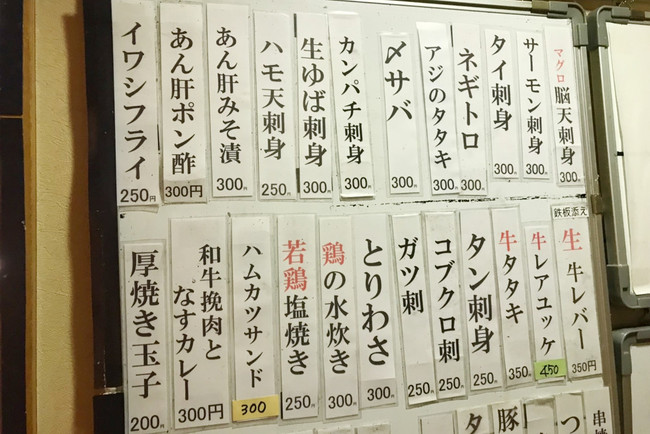 マグロ脳天刺身 300円
サーモン刺身 300円
タイ刺身 300円
ネギトロ 300円
アジのタタキ 300円
〆サバ 300円
カンパチ刺身 300円
生ゆば刺身 300円
ハモ天刺身 250円
あん肝みそ漬 300円
あん肝ポン酢 300円
イワシフライ 250円
鉄板添え
生牛レバー 350円
牛レアユッケ 450
牛タタキ 350円
タン刺身 250円
コブクロ刺 250円
ガツ刺 250円
とりわさ 300円
鶏の水炊き 300円
若鶏塩焼き 250円
ハムカツサンド 300
和牛挽肉となすカレー 300円
厚焼き玉子 200円
串
つ
豚
タ